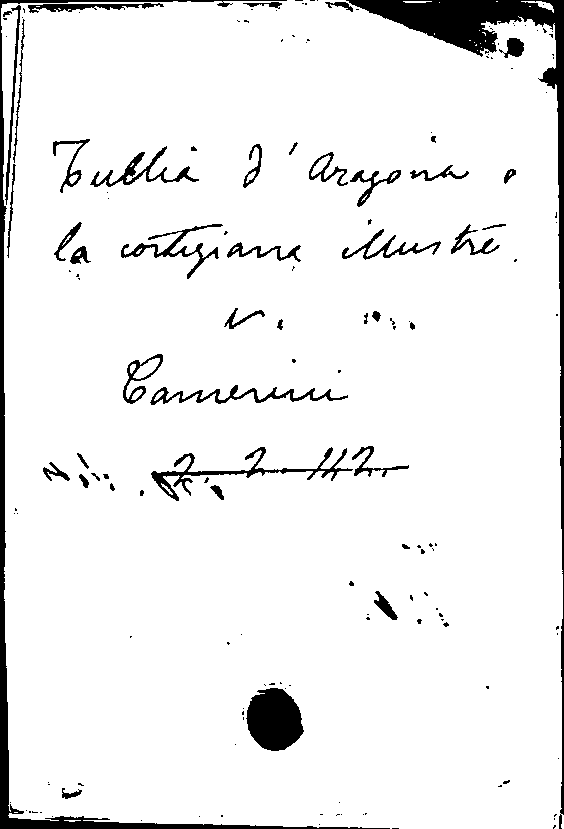 Tullia d'Aragona o
la cortigiana illustre.
v.
Camerini
2. 2. 142.